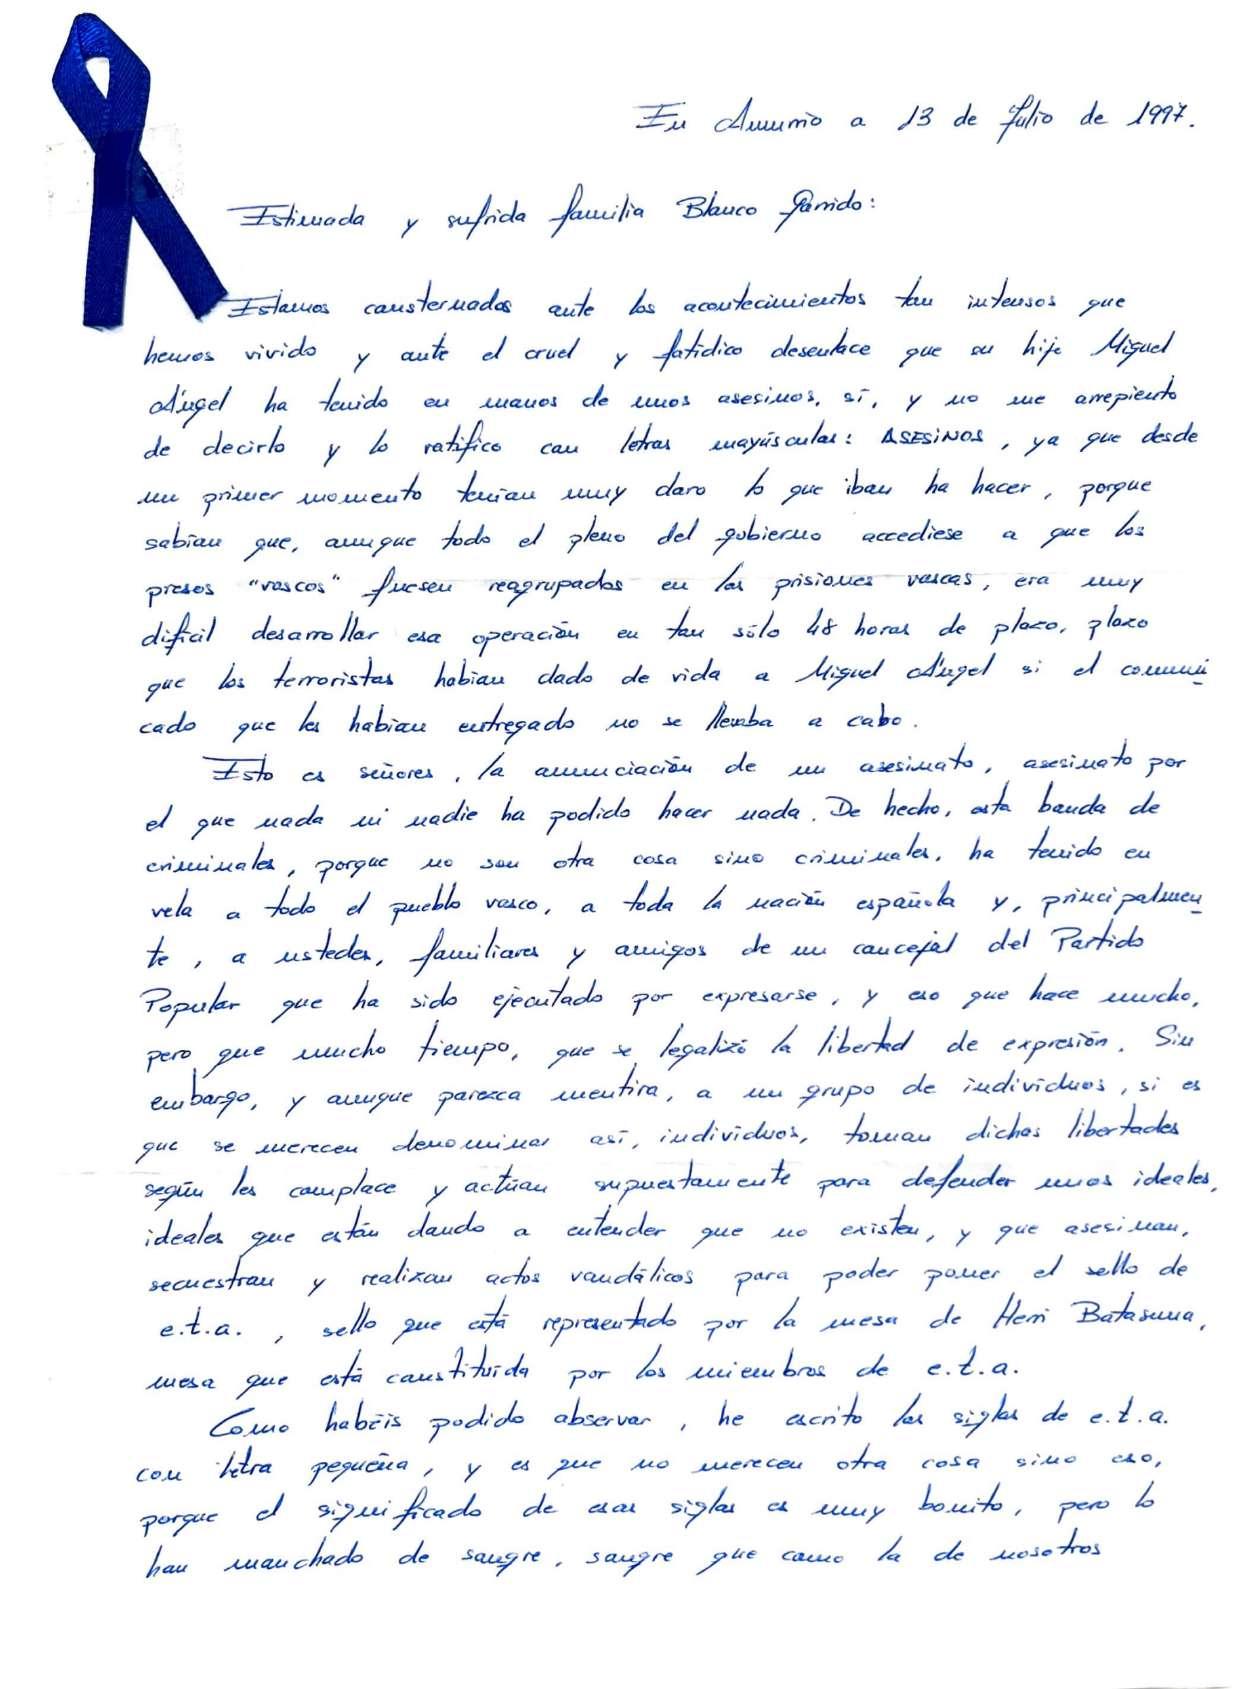 En Amurrio a 13 de Julio de 1997.
Estimada y sufrida familia Blanco Garrido:
Estamos consternados ante los acontecimientos tan intensos que
hemos vivido y ante el cruel y fatídico desenlace que su hijo Miguel
Ángel ha tenido en manos de unos asesinos, sí, y no me arrepiento
de decirlo y lo ratifico con letras mayúsculas: ASESINOS, ya que desde
un primer momento tenían muy claro lo que iban ha hacer, porque
sabían que, aunque todo el pleno del gobierno accediese a que los
presos "vascos" fuesen reagrupados en las prisiones vascas, era muy
difícil desarrollar esa operación en tan sólo 48 horas de plazo, plazo
que los terroristas habían dado de vida a Miguel Ángel si el comuni
cado que les habían entregado no se llevaba a cabo.
Esto es señores, la anunciación de un asesinato, asesinato por
el que nada ni nadie ha podido hacer nada. De hecho, esta banda de
criminales, porque no son otra cosa sino criminales, ha tenido en
vela a todo el pueblo vasco, a toda la nación española y, principalmen
te, a ustedes, familiares y amigos de un concejal del Partido
Popular que ha sido ejecutado por expresarse, y eso que hace mucho,
pero que mucho tiempo, que se legalizó la libertad de expresión. Sin
embargo, y aunque parezca mentira, a un grupo de individuos, si es
que se merecen denominar así, individuos, toman dichas libertades
según les complace y actúan supuestamente para defender unos ideales,
ideales que están dando a entender que no existen, y que asesinan,
secuestran y realizan actos vandálicos para poder poner el sello de
e.t.a., sello que está representado por la mesa de Herri Batasuna,
mesa que está constituida por los miembros de e.t.a.
Como habéis podido observar, he escrito las siglas de e.t.a.
con letra pequeña, y es que no merecen otra cosa sino eso,
porque el significado de esas siglas es muy bonito, pero lo
han manchado de sangre, sangre que como la de nosotros